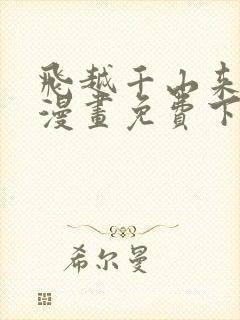 飛越千山来
漫畫免費下
希尔曼